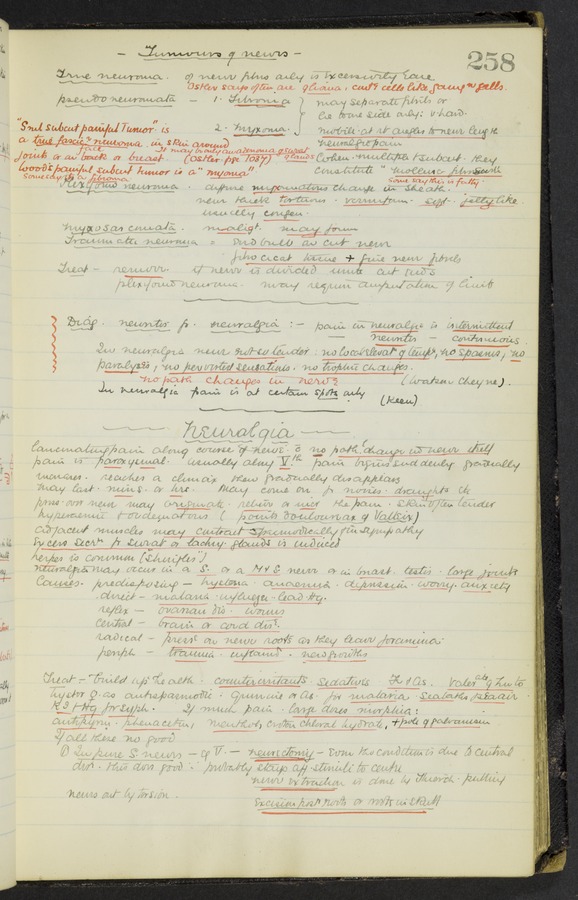 258
- Tumours of nerves -
True neuroma. of nerve fibres only is excessively rare
Osler says often are gliomas, contg cells like gangn galls.
pseudo neuromata - 1. Fibroma } may separate fibrils or
lie to one side only; & hard
2. Myxoma. mobile at rt angles to nerve length
neuralgic pain
"Smll subcut painful Tumor" is
a true fascic neuroma, in skin around
joints or on back or breast. (Osler pge 1087)
it may be only an adenoma of sweat glands
Cohen. multiple & subcut. they
constitute "molluscum fibrosum"
some say this is fatty.
Wood's painful subcut tumor is a "myoma"
some say its a fibroma
Plexiform neuroma. diffuse myxomatous change in sheath.
nerve thick tortuous. vermiform. soft. jelly like.
usually congen.
Myxosarcomata. malig. may form
Traumatic neuroma = End bulb on cut nerve
fibrocicat tissue + fine nerve fibrils
Treat - remove. if nerve is divided unite cut ends
plexiform neuroma. may require amputation of limb
Diag. neuritis fr. neuralgia :- pain in neuralgia is intermittent
neuritis - continuous.
In neuralgia nerve not so tender: no local elevat of temp, no spasms, no
paralysis, no perverted sensations. no trophic changes.
no path changes in nerve (Watson Cheyne).
In neuralgia pain is at certain spots only (Keen)
- Neuralgia -
lancinating pain along course of nerve c̄ no path. change in nerve itself
pain is paroxysmal. usually along Vth pain begins suddenly gradually
increases. reaches a climax then gradually disappears
may last mins. or hrs. may come on fr noises. draughts etc
press. over nerve may originate, relieve or incr the pain. Skin often tender
hyperaemic & oedematous (points douloureux of Valleix)
adjacent muscles may contract spasmodically fr. sympathy
Excess secrn fr sweat or lachry. glands is induced
herpes is common (shingles)
neuralgia may occur in a S. or a M & S nerve or in breast. testis. large joints
Causes. predisposing - hysteria. anaemia. depression. worry. anxiety
direct - malaria. influenza. lead. Hg.
reflex - ovarian dis. worms
central - brain or cord dise.
radical - press. on nerve roots as they leave foramina
periph - trauma. inflamn. new growths
Treat - Build up health. counterirritants. Sedatives. Fe & As. Valerate of Zn to
hyster. as antispasmodic. Quinine or As. for malaria. Seabaths & sea air
KI & Hg for syph. If much pain. large doses morphia:
antipyrin. phenacetin, menthol, croton chloral hydrate, + pole galvanism
If all these no good
1) In pure S. nerves - eg V. - neurectomy - Even tho condition is due to central
dis. this does good ∵ probably stops aff. stimuli to centre
nerve extraction is done by Thiersch. pulling
nerves out by torsion.
Excision post roots or roots in skull